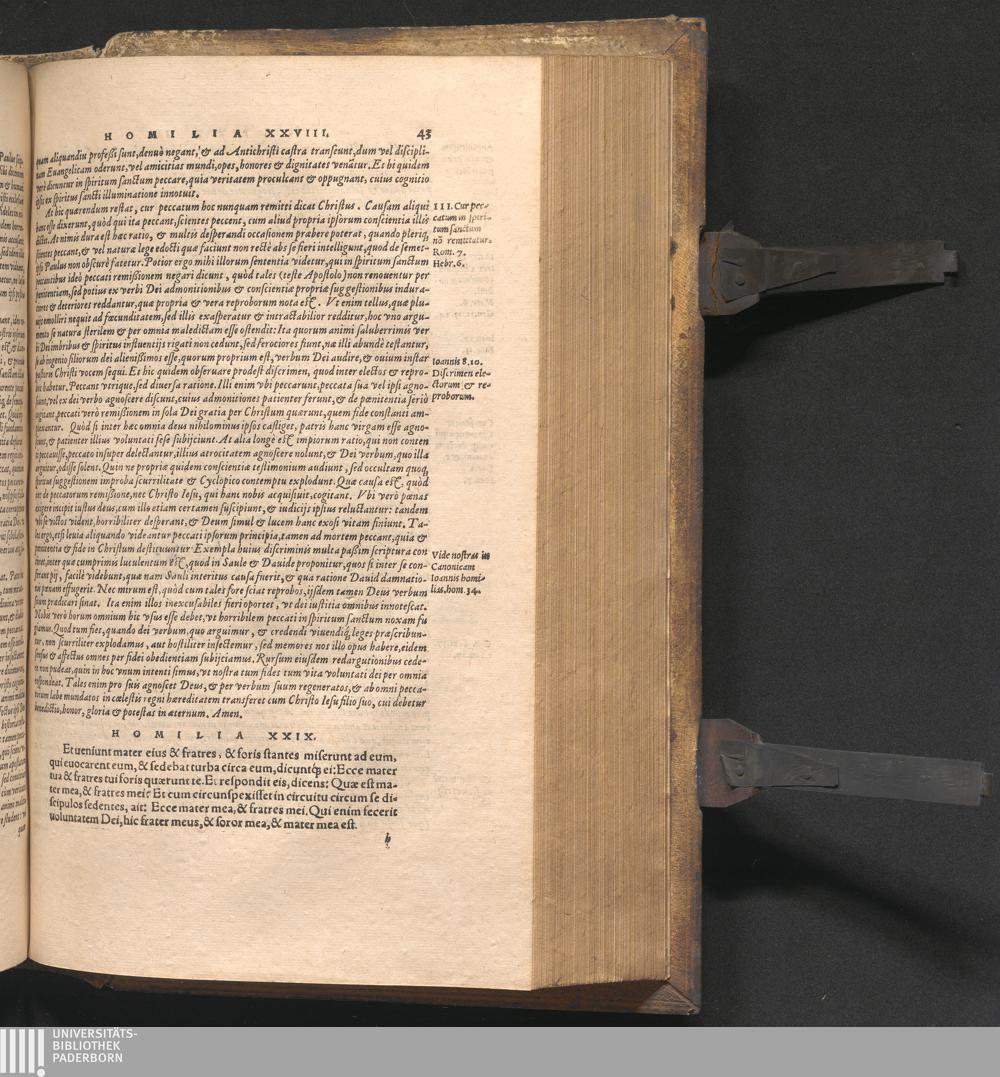 HOMILIA XXVIII. 43
quam aliquandiu professi sunt, denuò negant, & ad Antichristi castra transeunt, dum vel discipli-
nam Euangelicam oderunt, vel amicitias mundi, opes, honores & dignitates venãtur. Et hi quidem
verè dicuntur in spiritum sanctum peccare, quia veritatem proculcant & oppugnant, cuius cognitio
ipsis ex spiritus sancti illuminatione innotuit.
At hic quærendum restat, cur peccatum hoc nunquam remitti dicat Christus. Causam aliqui
hanc esse dixerunt, quòd qui ita peccant, scientes peccent, cum aliud propria ipsorum conscientia illis
dictet. At nimis dura est hæc ratio, & multis desperandi occasionem præbere poterat, quando pleriq;
scientes peccant, & vel naturæ lege edocti quæ faciunt non rectè abs se fieri intelligunt, quod de semet-
ipso Paulus non obscurè fatetur. Potior ergo mihi illorum sententia videtur, qui in spiritum sanctum
peccantibus ideò peccati remissionem negari dicunt, quòd tales (teste Apostolo) non renouentur per
pœnitentiam, sed potius ex verbi Dei admonitionibus & conscientiæ propriæ suggestionibus indura-
tiores & deteriores reddantur, quæ propria & vera reproborum nota est. Vt enim tellus, quæ plu-
uijs emolliri nequit ad fœcunditatem, sed illis exasperatur & intractabilior redditur, hoc vno argu-
mento se natura sterilem & per omnia maledictam esse ostendit: Ita quorum animi saluberrimis ver
bi Dei imbribus & spiritus influentijs rigati non cedunt, sed ferociores fiunt, næ illi abundè testantur,
se ab ingenio filiorum dei alienissimos esse, quorum proprium est, verbum Dei audire, & ouium instar
pastoris Christi vocem sequi. Et hic quidem obseruare prodest discrimen, quod inter electos & repro-
bos habetur. Peccant vtrique, sed diuersa ratione. Illi enim vbi peccarunt, peccata sua vel ipsi agno-
scunt, vel ex dei verbo agnoscere discunt, cuius admonitiones patienter ferunt, & de pœnitentia seriò
cogitant, peccati verò remissionem in sola Dei gratia per Christum quærunt, quem fide constanti am-
plexantur. Quòd si inter hæc omnia deus nihilominus ipsos castiget, patris hanc virgam esse agno-
scunt, & patienter illius voluntati sese subijciunt. At alia longè est impiorum ratio, qui non conten
ti peccauisse, peccato insuper delectantur, illius atrocitatem agnoscere nolunt, & Dei verbum, quo illa
arguitur, odisse solent. Quin ne propriæ quidem conscientiæ testimonium audiunt, sed occultam quoq;
spiritus suggestionem improba scurrilitate & Cyclopico contemptu explodunt. Quæ causa est, quòd
nec de peccatorum remissione, nec Christo Iesu, qui hanc nobis acquisiuit, cogitant. Vbi verò pœnas
exigere incipit iustus deus, cum illo etiam certamen suscipiunt, & iudicijs ipsius reluctantur: tandem
vbi se victos vident, horribiliter desperant, & Deum simul & lucem hanc exosi vitam finiunt. Ta-
les ergo, etsi leuia aliquando videantur peccati ipsorum principia, tamen ad mortem peccant, quia &
pœnitentia & fide in Christum destituuntur. Exempla huius discriminis multa passim scriptura con
tinet, inter quæ cumprimis luculentum est, quod in Saule & Dauide proponitur, quos si inter se con-
ferant pij, facilè videbunt, quæ nam Sauli interitus causa fuerit, & qua ratione Dauid damnatio-
nis pœnam effugerit. Nec mirum est, quòd cum tales fore sciat reprobos, ijsdem tamen Deus verbum
suum prædicari sinat. Ita enim illos inexcusabiles fieri oportet, vt dei iustitia omnibus innotescat.
Nobis verò horum omnium hic vsus esse debet, vt horribilem peccati in spiritum sanctum noxam fu
giamus. Quod tum fiet, quando dei verbum, quo arguimur, & credendi viuendiq; leges præscribun-
tur, non scurriliter explodamus, aut hostiliter insectemur, sed memores nos illo opus habere, eidem
sensus & affectus omnes per fidei obedientiam subijciamus. Rursum eiusdem redargutionibus cede-
re non pudeat, quin in hoc vnum intenti simus, vt nostra tum fides tum vita voluntati dei per omnia
respondeat. Tales enim pro suis agnoscet Deus, & per verbum suum regeneratos, & ab omni pecca-
torum labe mundatos in cœlestis regni hæreditatem transferet cum Christo Iesu filio suo, cui debetur
benedictio, honor, gloria & potestas in æternum. Amen.
III. Cur pec-
catum in spiri-
tum sanctum
nõ remittatur.
Rom. 7.
Hebr. 6.
Ioannis 8. 10.
Discrimen ele-
ctorum & re-
proborum.
Vide nostras in
Canonicam
Ioannis homi-
lias, hom. 34.
HOMILIA XXIX.
Et ueniunt mater eius & fratres, & foris stantes miserunt ad eum,
qui euocarent eum, & sedebat turba circa eum, dicuntq; ei: Ecce mater
tua & fratres tui foris quærunt te. Et respondit eis, dicens: Quæ est ma-
ter mea, & fratres mei? Et cum circunspexisset in circuitu circum se di-
scipulos sedentes, ait: Ecce mater mea, & fratres mei. Qui enim fecerit
uoluntatem Dei, hic frater meus, & soror mea, & mater mea est.
h
UNIVERSITÄTS-
BIBLIOTHEK
PADERBORN